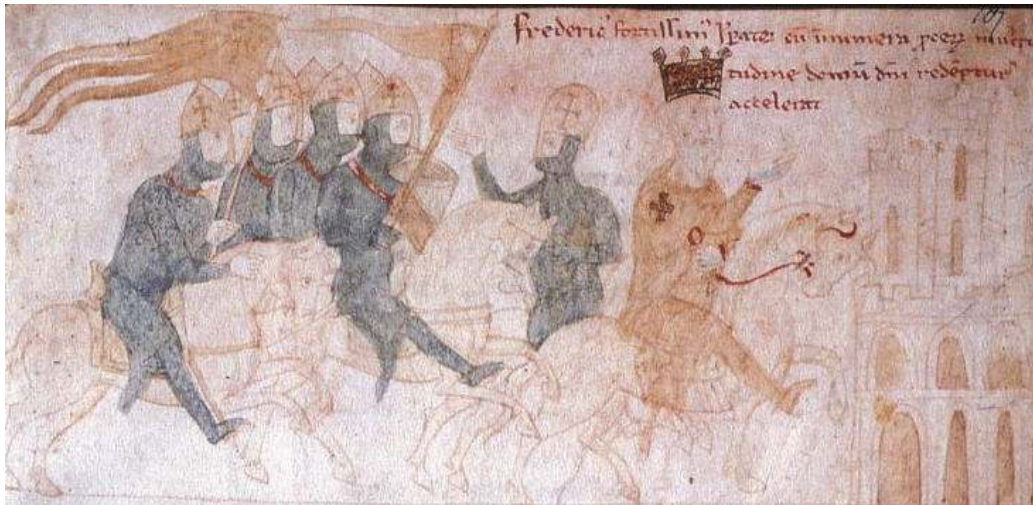 frederic' fortissim' Ipator cū innumera pcerū multi
tudine domū dni redēptur'
accelerat